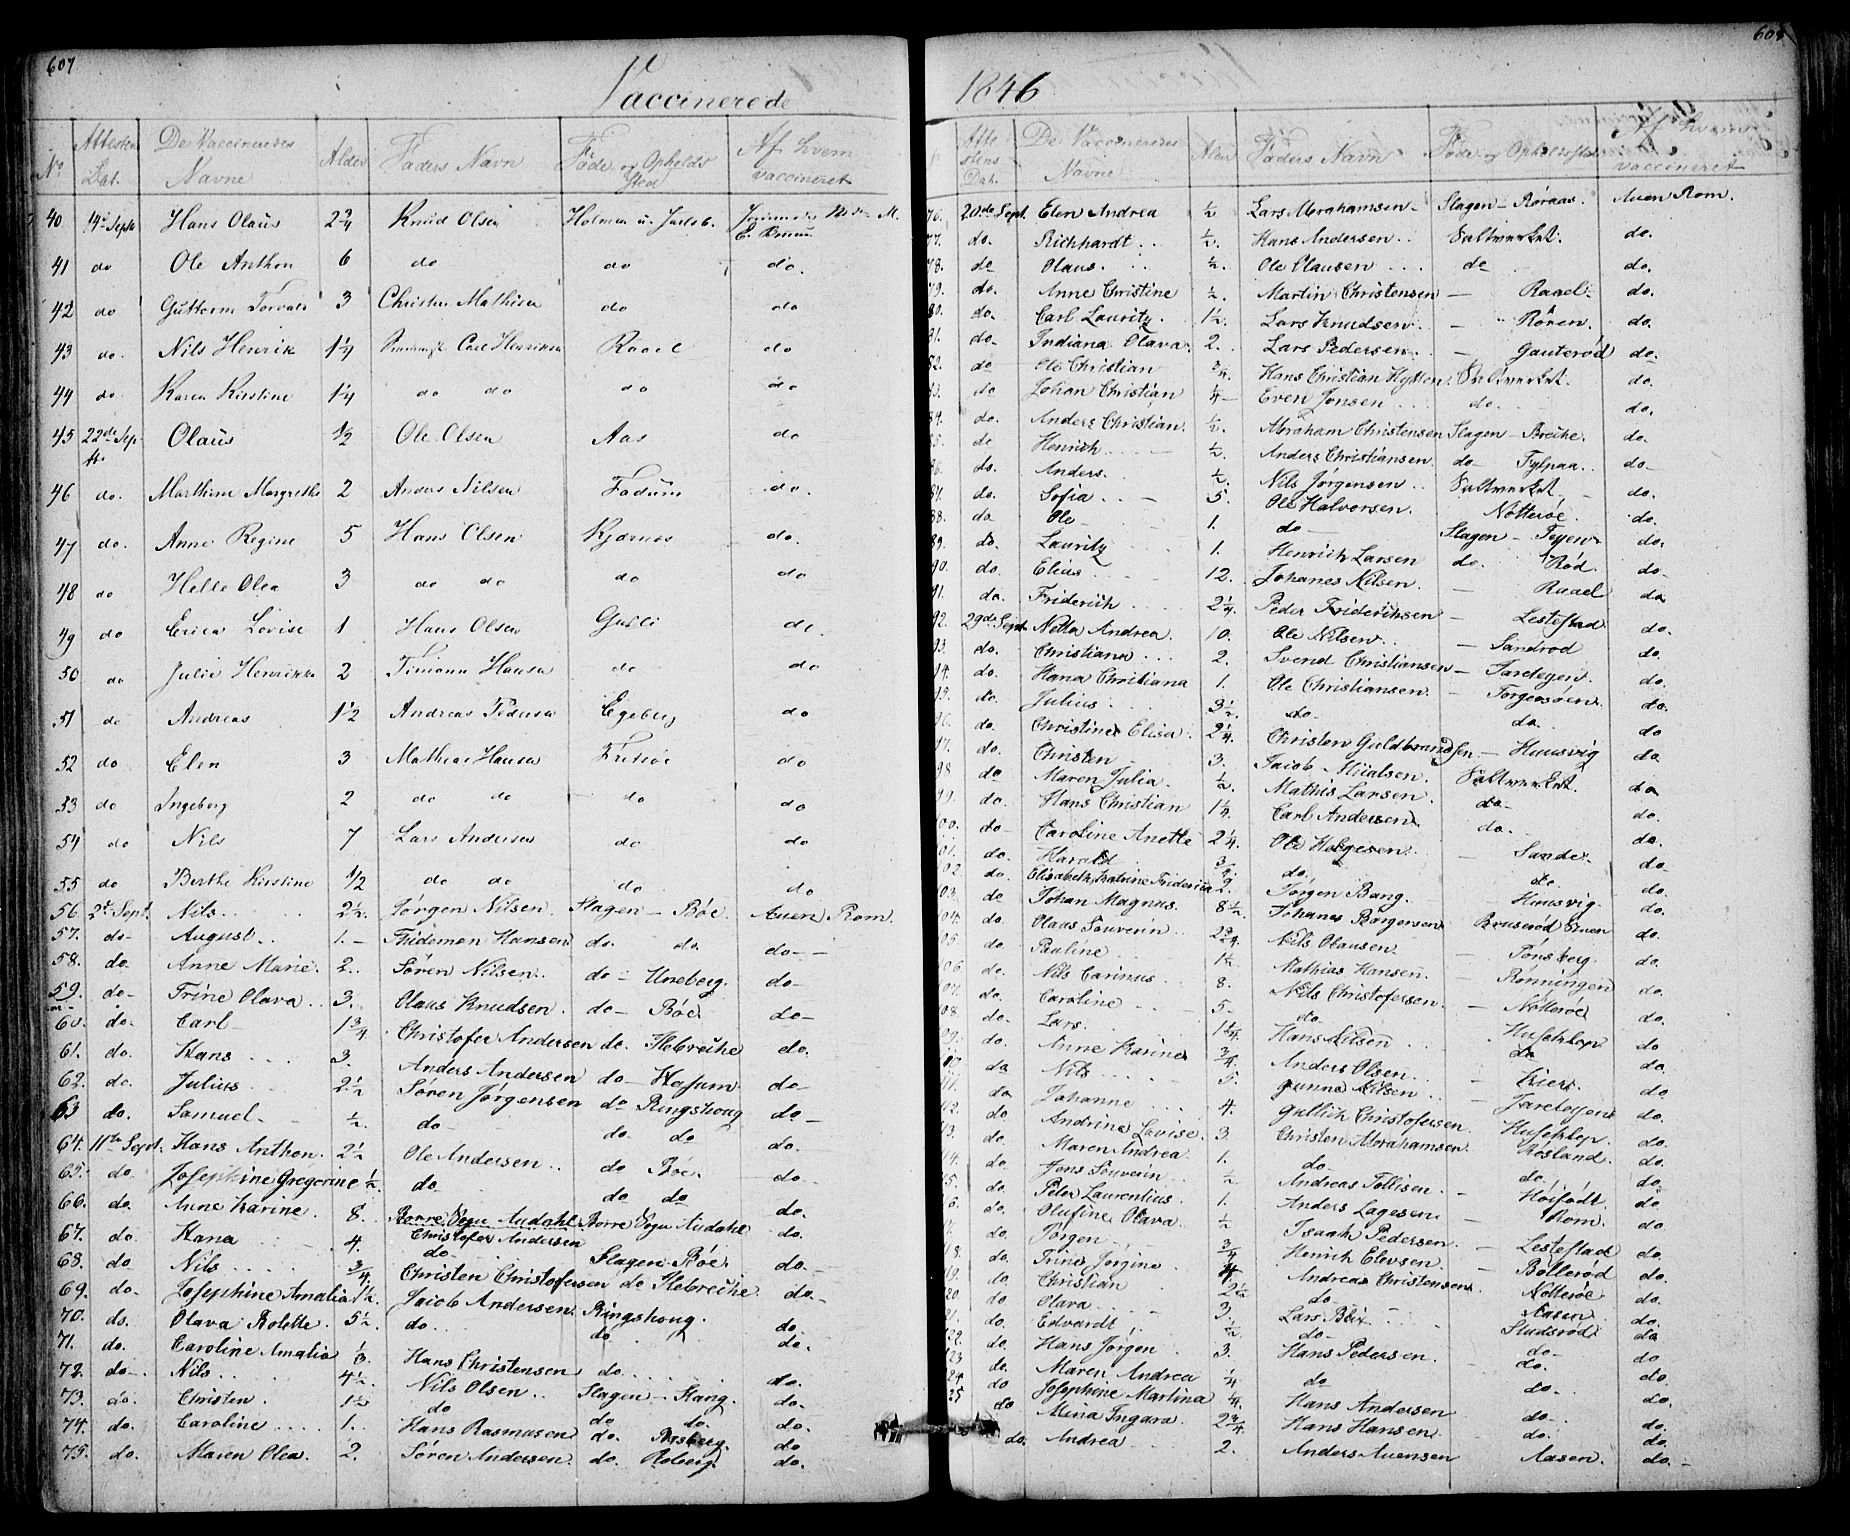 607
Vaccinerede
No Attestens Dat. De Vaccineredes Navne Alder Faders Navn Föde og Opholds Sted Af hvem vaccineret
40 14de Septb Hans Olaüs 2 3/4 Knud Olsen Holmen u. Jarlsb. E. Bruun
41 do Ole Anthon 6 do do do.
42 do Guttorm Torvald 3 Christen Mathisen do do
43 do. Nils Henrik 1 1/4 Carl Henriksen Raael do
44 do Karen Kirstine 1/4 do do do do
45 22de Septb. Olaüs 1/2 Ole Olsen Aas do
46 do. Marthine Margrethe 2 Anders Nilsen Fadum do.
47 do. Anne Regine 5 Hans Olsen Kjærnæs do.
48 do Helle Olea 3 do do do do
49 do Erica Lovise 1 Hans Olsen Gulli do.
50 do Julie Henrikka 2 Timann Hansen do do
51 do Andreas 1 1/2 Andreas Pedersen Egeberg do
52 do Elen 3 Mathias Hansen Fritsöe do
53 do Ingeborg 2 do do do do
54 do Nils 7 Lars Andersen do do
55 do Berthe Kirstine 1/2 do do do do
56. 2de Sept. Nils 2 1/2. Jørgen Nilsen. Slagen - Böe. Auen Rom.
57. do- August. 1.- Thideman Hansen do. do. do-
58. do. Anne Marie. 2. Sören Nilsen. do- Uneberg. do-
59. do- Trine Olava 3. Olaus Knudsen. do- Böe do-
60. do. Carl 1 3/4. Christofer Andersen do. Hebreche do.
61. do. Hans 3. Anders Andersen do- Hasum. do-
62. do. Julius 2 1/2 Sören Jörgensen do- Ringshoug do-
63 do. Samuel. 1/2. do- do do do.
64. 11te Sept. Hans Anthon. 2 1/2 Ole Andersen do Böe. do.
65. do. Josephine Gregorine 1/2. do. do do do.
66. do. Anne Karine. 8. Borre Sogn Audahl Borre Sogn Audahl do.
67. do. Hana 4. Christofer Andersen do.
68. do. Nils 3/4. do- Slagen-Böe. do.
69. do. Josephine Amalia 1 1/2. Christen Christofersen do Hebreche do-
70. do. Olava Bolette. 5 1/2. Jacob Andersen. Ringshoug. do.
71. do. Caroline Amalia 1/3. do. do do.
72. do-. Nils 4 1/2. Hans Christensen do. do.
73. do. Christen 1 1/2 Nils Olsen Slagen-Hang. do.
74. do. Caroline 1. do do do. do.
75. do. Maren Olea. 2. Hans Rasmusen do. Aasberg. do
Sören Andersen. do. Roberg. do.
1846
Attestens Dat. De Vaccineredes Navne Alder Faders Navn Föde og Opholdssted Af hvem vaccineret
76. 20de Sept. Elen Andrea 1/2 Lars Abrahamsen- Slagen-Röraas. Auen Rom.
77. do. Richhardt 1/2. Hans Andersen Saltværket. do.
78. do Olaus. 1/2. Ole Olausen do do.
79. do. Anne Christine 1/2. Martin Christensen - Raael do.
80. do. Carl Lauritz. 1 1/2. Lars Knudsen. - Rören. do.
81. do- Indiana Olava. 2. Lars Pedersen. - Gauteröd do.
82. do Ole Christian 3/4. Hans Christian Hytten. Saltværket. do.
83. do Johan Christian 4- Even Jonsen do. do.
84. do. Anders Christian. 1/2. Abraham Christensen Slagen-Breche. do.
85. do Henrich 1/2. Anders Christiansen. do- Fylpaa. do-
86. do. Anders. 1/2. Nils Jörgensen Saltværket. do.
87. do. Sofia 5. Ole Halvorsen. Nötteröe. do.
88. do Ole 1. do- Slagen-Teyen do.
89. do. Lauritz 1. Henrich Larsen do. Röd. do-
90. do. Elias 12. Johanes Nilsen. - Raael do
91. do. Friderich 2 1/4. Peder Friderichsen - Lestestad do.
92. 29de Sept. Netta Andrea. 10. Ole Nilsen - Sandröd do.
93. do. Christiana 2. Svend Christiansen - Jareteyen. do.
94. do. Hana Christiana 1. Ole Christiansen - Torgersöen. do.
95. do. Julius 3 1/2. do- do. do
96. do. Christine Elisa. 2 1/4. Christen Guldbrandsen - Huusvig do.
97. do. Christen 3. Jacob Miialsen. Saltværket. do
98 do Maren Julia. 1/2. Mathis Larsen do- do.
99. do. Hans Christian 1 1/4. Carl Andersen. do. do.
100. do- Caroline Anette 2 1/4. Ole Helgesen. - Sande. do-
101. do. Harald 3/4. do. do do.
102. do. Elisabeth Katrine Friderica 2. Jörgen Bang. - Huusvig. do.
103. do Johan Magnus. 8 1/2. Johanes Borgersen Bruseröd do.
104. do. Olaus Souverin. 2 3/4. Nils Olausen. - Tönsberg. do.
105. do Pauline. 1 1/2. Mathias Hansen. - Rönningen do.
106. do. Nils Carinus 8. Nils Christofersen. - Nötteröe do.
107. do. Caroline 5. do - Husehlep do
108. do. Lars. 1 2/4. Hans Nilsen do do
109. do. Anne Karine 3/4. Anders Olsen - Kier. do.
do Nils 5. Gunne Nilsen - Jareteyen do.
do Johanne 4. Gullich Christofersen. - Husehlep. do.
do Andrine Lovise. 3. Christen Abrahamsen. - Rosland. do.
do. Maren Andrea 1. do do. do
do. Jens Souverin 1/2. Andreas Tollisen - Höifödt. do.
do. Peter Laurentius. 1. Anders Lagesen - Rom. do.
do. Olufine Olava. 1/2 Isaach Pedersen. - Lestestad do.
do. Jörgen 3/4 Henrich Elevsen - Bolleröd do.
do. Trine Jörgine 4 Andreas Christensen. - Nötteröe do.
do. Christian 2 1/2 do - Aasen do.
do Olava 3. Lars Blix Studsröd do
do. Edvardt 1/2 do- do- do
do. Hans Jörgen 3. Hans Pedersen. do. do.
do. Maren Andrea 1/4 do do- do.
do Josephine Martina 1/4. Hans Andersen do-. do.
do Mina Ingara. 2 3/4 Hans Hansen do. do.
do. Andrea 2. Anders Auensen Aasen. do.-